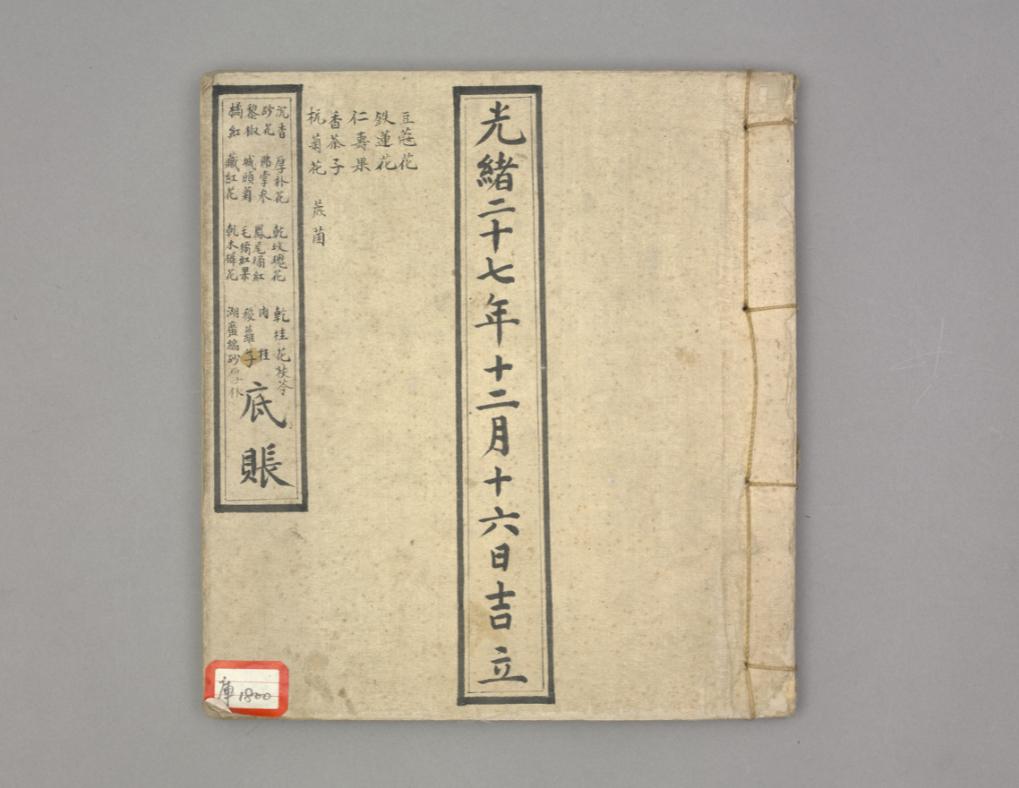 光緒二十七年十二月十六日吉立
豆蔻花
鉄蓮花
仁壽果
香茶子
杭菊花
茂菌
沉香 厚朴花 乾玫瑰花 乾桂花茯苓
砂花 鳳尾橘紅 肉桂
黎椒 城頭菊 毛橘紅果
橘紅 藏紅花 乾木樨花
底賬
庫1800